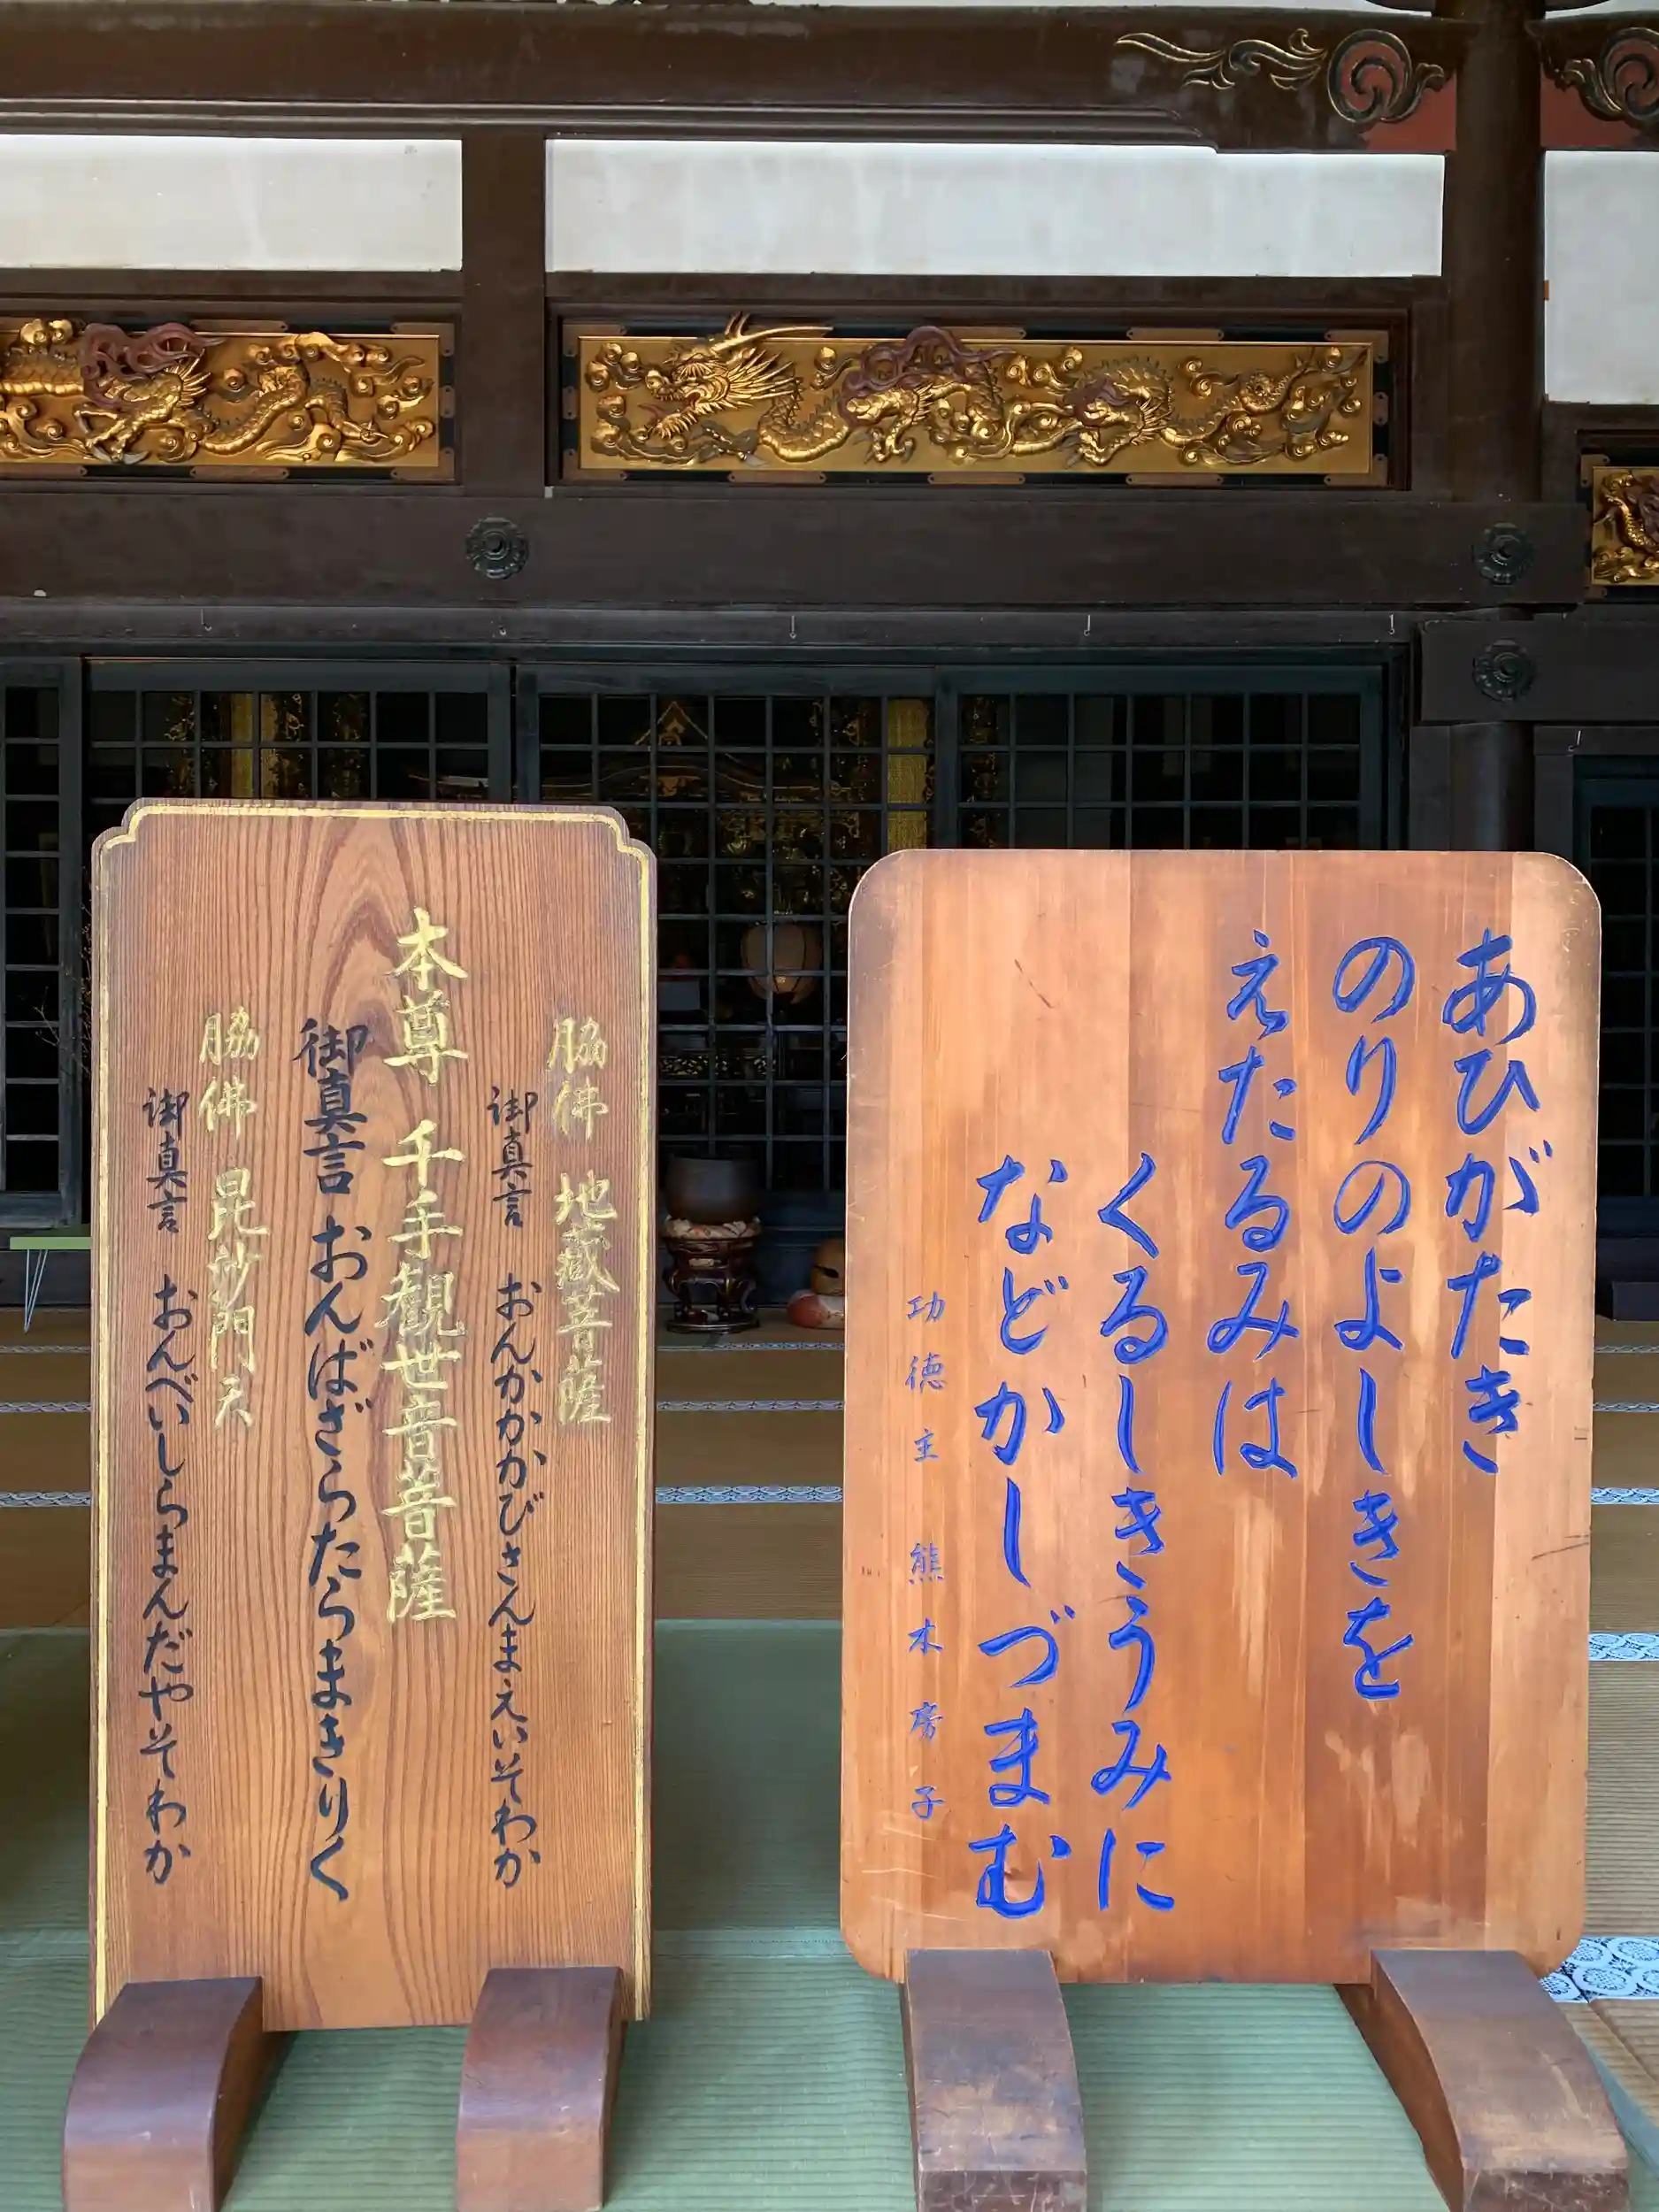 脇佛 地蔵菩薩
御真言 おんかかかびさんまえいそわか
本尊 千手観世音菩薩
御真言 おんばざらたらまきりく
脇佛 毘沙門天
御真言 おんべいしらまんだやそわか
あひがたき
のりのよしきを
えたるみは
くるしきうみに
などかしづまむ
功徳主 熊木房子